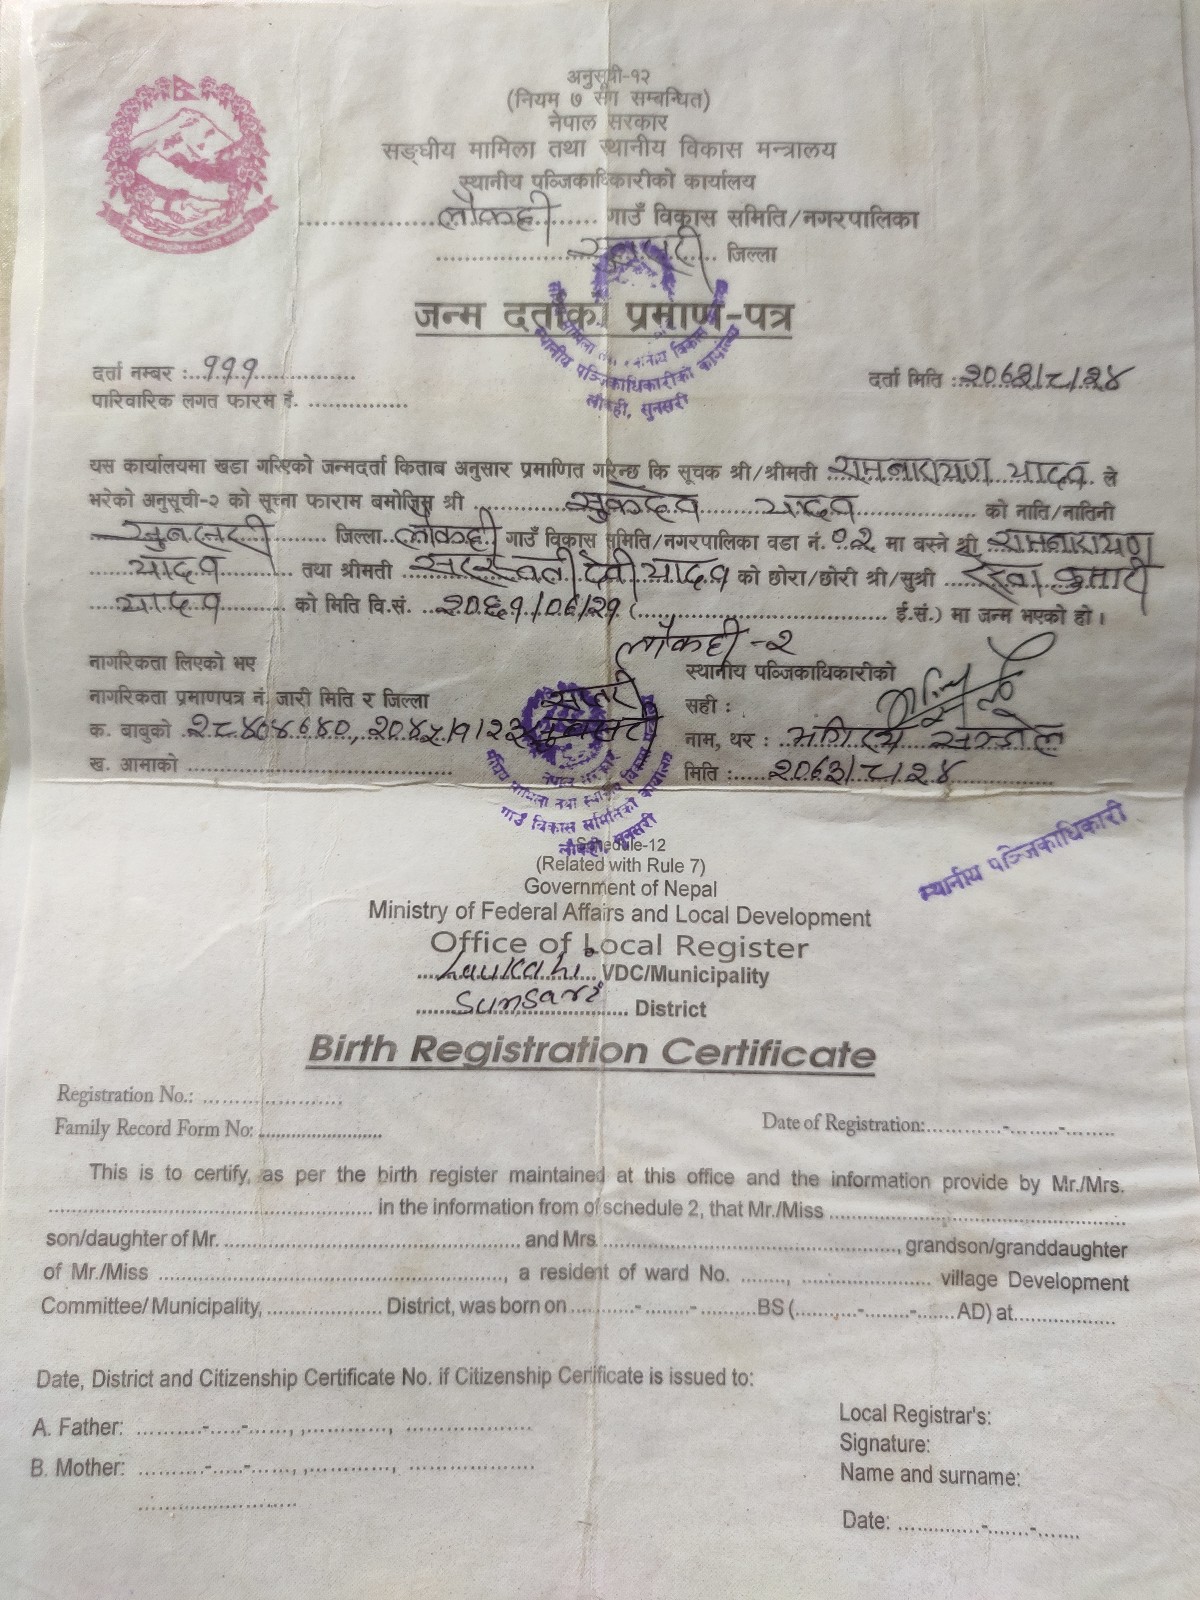 अनुसूची-१२
(नियम ७ सँग सम्बन्धित)
नेपाल सरकार
सङ्घीय मामिला तथा स्थानीय विकास मन्त्रालय
स्थानीय पञ्जिकाधिकारीको कार्यालय
लौकही गाउँ विकास समिति/नगरपालिका
सुनसरी जिल्ला
जन्म दर्ताको प्रमाण-पत्र
दर्ता नम्बर : १११
दर्ता मिति :
पारिवारिक लगत फारम नं.
स्थानीय पञ्जिकाधिकारीको कार्यालय
लौकही, सुनसरी
यस कार्यालयमा खडा गरिएको जन्मदर्ता किताब अनुसार प्रमाणित गरिन्छ कि सूचक श्री/श्रीमती रामनारायण यादव ले
भरेको अनुसूची-२ को सूचना फाराम बमोजिम श्री सुकदेव यादव को नाति/नातिनी
सुनसरी जिल्ला लौकही गाउँ विकास समिति/नगरपालिका वडा नं. ०२ मा बस्ने श्री रामनारायण
यादव तथा श्रीमती देवी यादव को छोरा/छोरी श्री/सुश्री कुमारी
यादव को मिति वि.सं. २०६१/०६/२१ ( ई.सं.) मा जन्म भएको हो ।
लौकही -२
नागरिकता लिएको भए
स्थानीय पञ्जिकाधिकारीको
नागरिकता प्रमाणपत्र नं. जारी मिति र जिल्ला
सही :
क. बाबुको
नाम, थर :
ख. आमाको
मिति :
गाउँ विकास समितिको कार्यालय
लौकही, सुनसरी
स्थानीय पञ्जिकाधिकारी
Schedule-12
(Related with Rule 7)
Government of Nepal
Ministry of Federal Affairs and Local Development
Office of Local Register
Laukahi VDC/Municipality
Sunsari District
Birth Registration Certificate
Registration No.:
Family Record Form No:
Date of Registration:
This is to certify, as per the birth register maintained at this office and the information provide by Mr./Mrs.
in the information from of schedule 2, that Mr./Miss
son/daughter of Mr. and Mrs , grandson/granddaughter
of Mr./Miss , a resident of ward No. , village Development
Committee/ Municipality, District, was born on - - BS ( - - AD) at
Date, District and Citizenship Certificate No. if Citizenship Certificate is issued to:
A. Father:
B. Mother:
Local Registrar's:
Signature:
Name and surname:
Date: